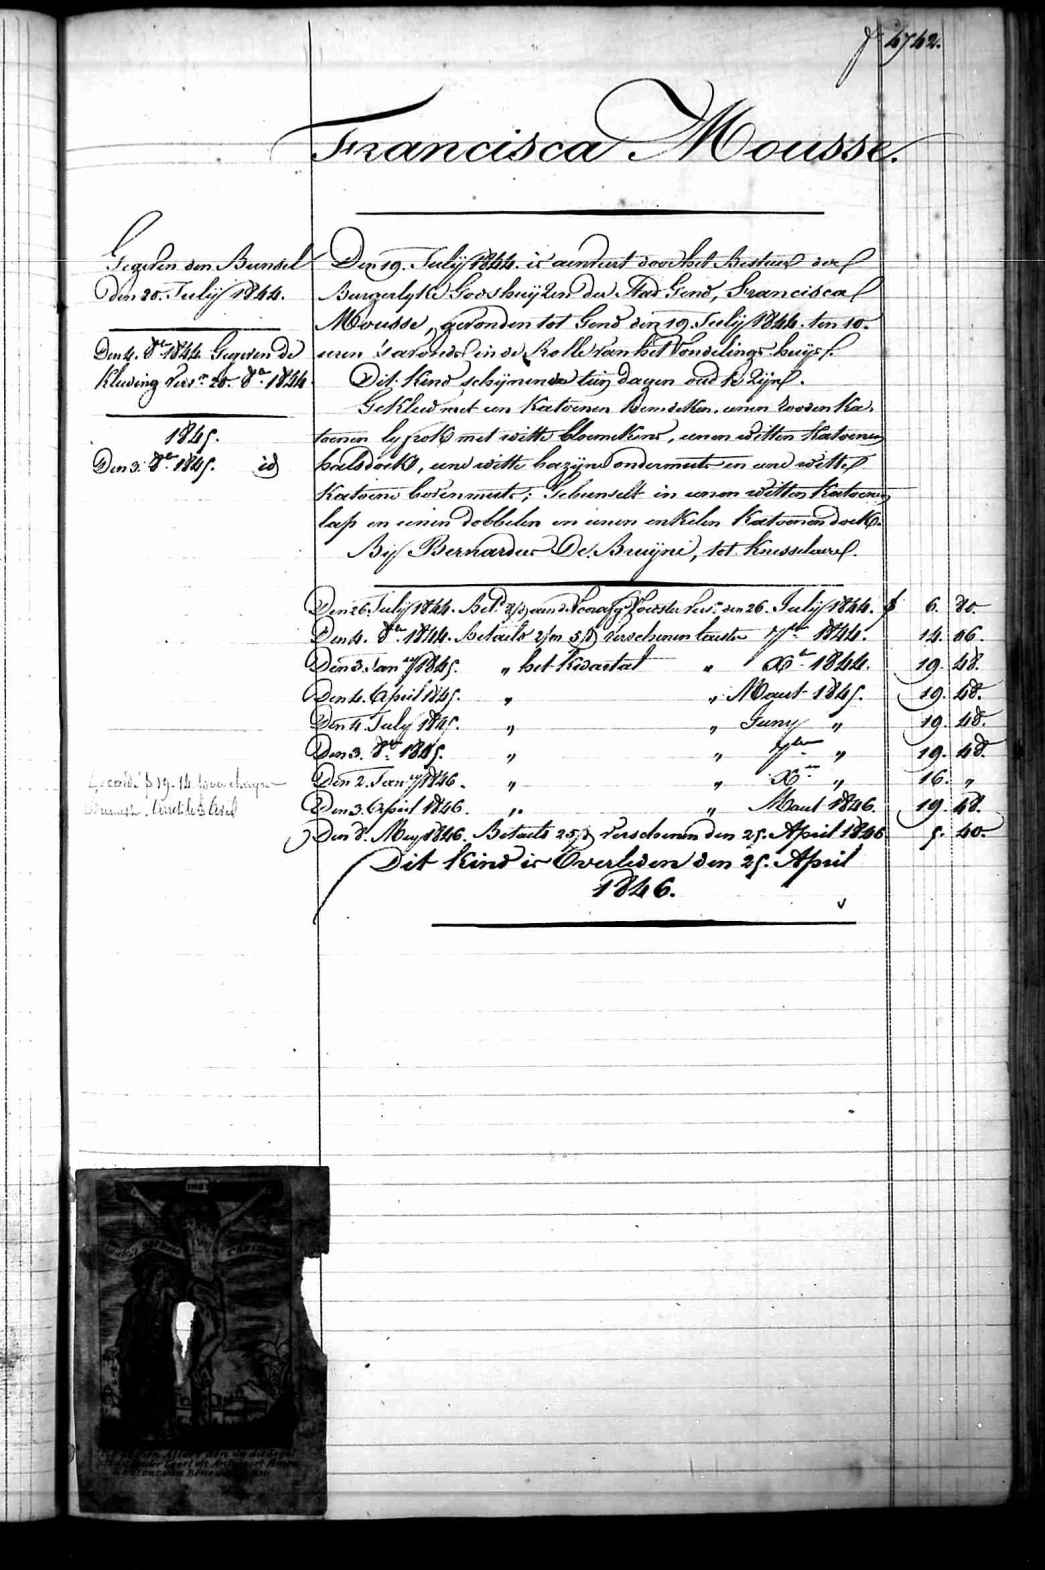 4742.
Francisca Mousse.
Gegeven den Bunsel
den 20. Julij 1844.
Den 4. 8re 1844. Gegeven de
Kleding vers. 20. 8re 1844
1845.
Den 3. 8re 1845. id
Den 19. Julij 1844. is aenveert door het Bestuer der
Burgerlyke Godshuijzen der Stad Gend, Francisca
Mousse, gevonden tot Gend den 19 Julij 1844. ten 10.
uren 's avonds in de Rolle van het Vondelings huijs.
Dit Kind schijnende tien dagen oud te Zijn.
Gekleed met een Katoenen hemdeken, eenen rooden Ka-
toenen lijfrok met witte bloemekens, eenen witten Katoenen
halsdoek, eene witte bazijne ondermuts en eene witte
Katoene bovenmuts; Gebunselt in eenen witten Katoenen
lap en eenen dobbelen en eenen enkelen Katoenen doek.
Bij Bernardus De Bruijne, tot Knesselaere.
Den 26 Julij 1844. den 26. Julij 1844. 6. 80
Den 4. 8re 1844. Betaelt verschenen laeste 7bre 1844. 14. 06.
Den 3. Jany 1845. „ het Kwartael „ Xre 1844. 19. 48.
Den 4. April 1845. „ „ Maert 1845. 19. 48.
Den 4. July 1845. „ „ Juny „ 19. 48.
Den 3. 8re 1845. „ „ 7bre „ 19. 48
Den 2. Jany 1846. „ „ Xre „ 16. „
Den 3. April 1846. „ „ Maert 1846. 19. 48.
Den 8. Mey 1846. Betaelt 25/d verschenen den 25. April 1846 5. 40.
Dit Kind is Overleden den 25. April
1846.